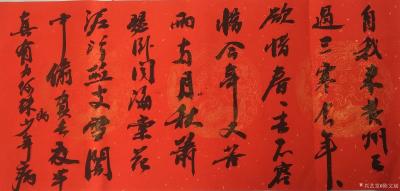 自我來黃州已
過三寒食年、
欲惜春、去不容
惜今年又苦
雨兩月秋蕭
瑟卧聞海棠花
泥污燕支雪闇
中偷負去夜半
真有力何殊病少年病